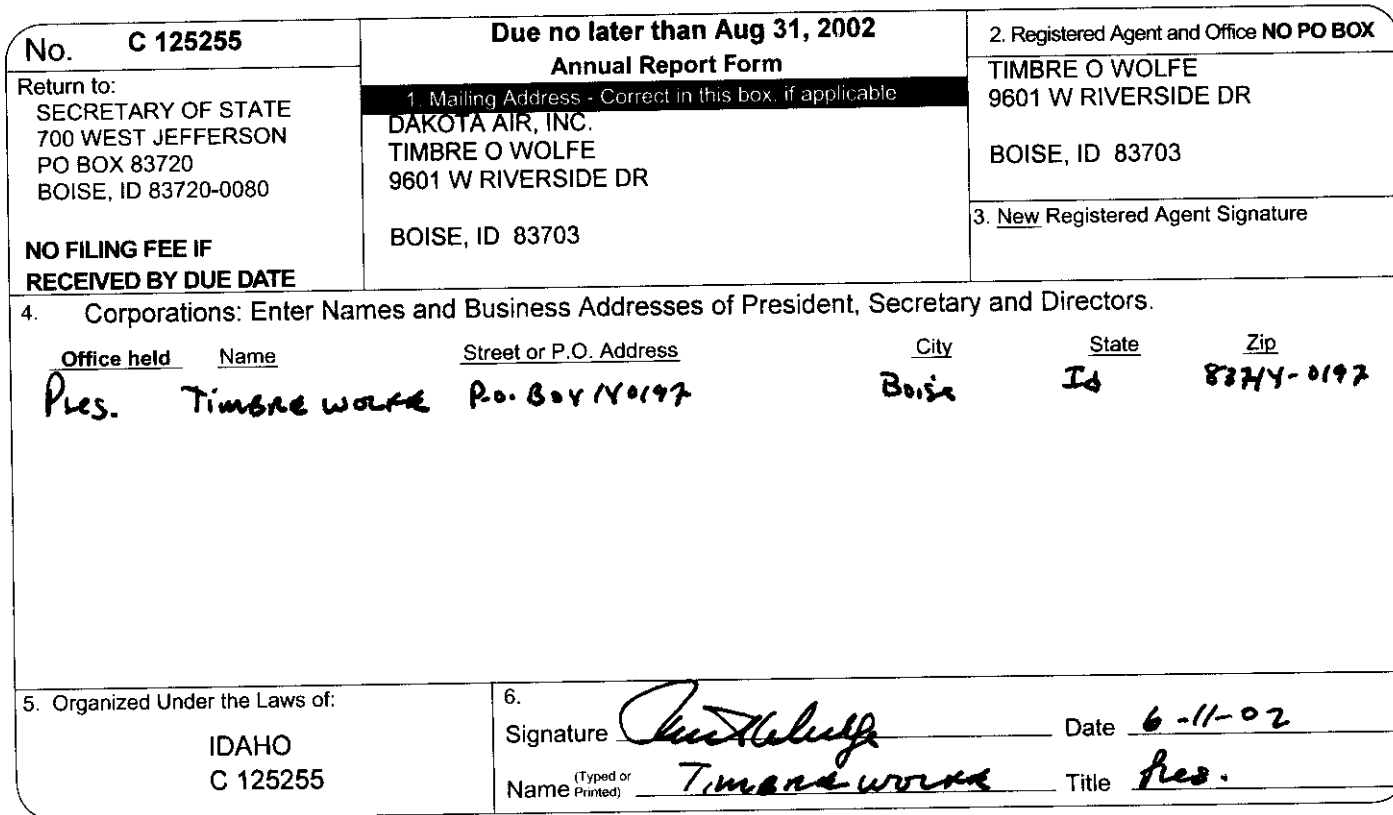 No. C 125255
Return to:
SECRETARY OF STATE
700 WEST JEFFERSON
PO BOX 83720
BOISE, ID 83720-0080
NO FILING FEE IF
RECEIVED BY DUE DATE
Due no later than Aug 31, 2002
Annual Report Form
1. Mailing Address - Correct in this box, if applicable
DAKOTA AIR, INC.
TIMBRE O WOLFE
9601 W RIVERSIDE DR
BOISE, ID 83703
2. Registered Agent and Office NO PO BOX
TIMBRE O WOLFE
9601 W RIVERSIDE DR
BOISE, ID 83703
3. New Registered Agent Signature
4. Corporations: Enter Names and Business Addresses of President, Secretary and Directors.
Office held Name Street or P.O. Address City State Zip
Pres. Timbre Wolfe P.O. Box 140197 Boise Id 83714-0197
5. Organized Under the Laws of:
IDAHO
C 125255
6.
Signature Date 6-11-02
Name (Typed or Printed) Timbre Wolfe Title Pres.